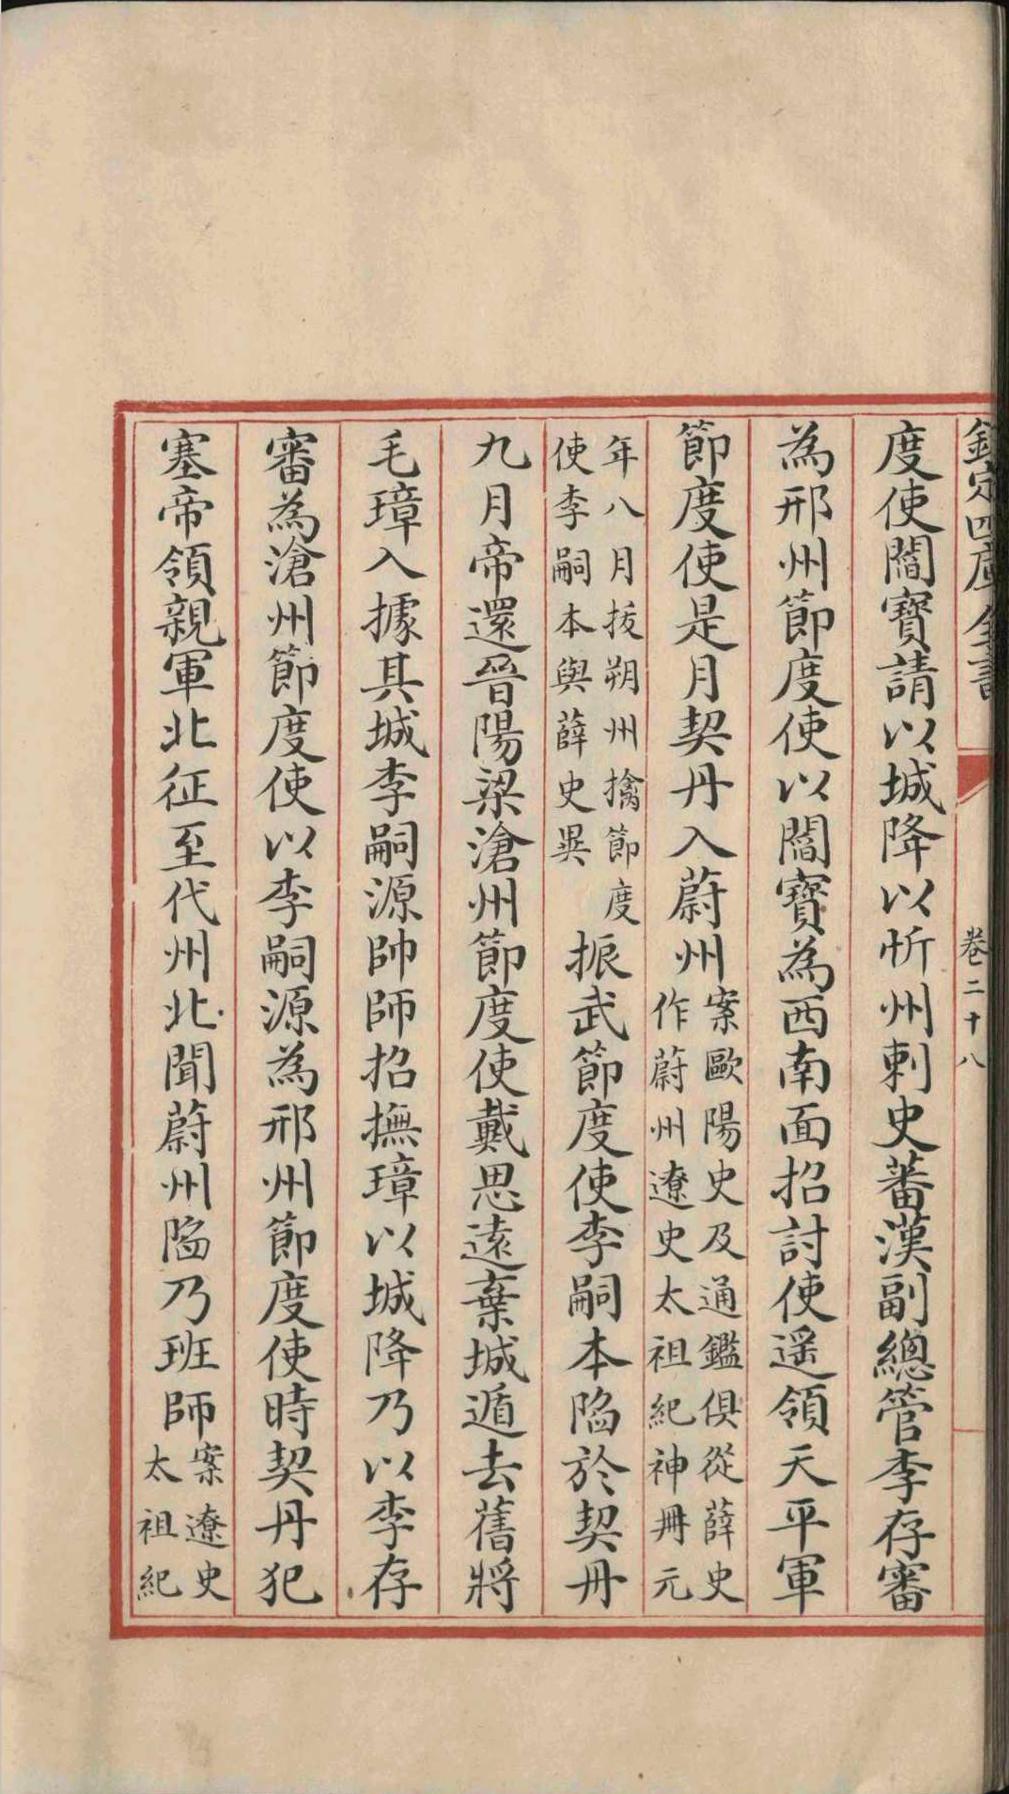 欽定四庫全書
卷二十八
度使閻寶請以城降以忻州刺史蕃漢副總管李存審
為邢州節度使以閻寶為西南面招討使遥領天平軍
節度使是月契丹入蔚州案歐陽史及通鑑俱從薛史
作蔚州遼史太祖紀神冊元
年八月拔朔州擒節度
使李嗣本與薛史異
振武節度使李嗣本陷於契丹
九月帝還晉陽梁滄州節度使戴思遠棄城遁去舊將
毛璋入據其城李嗣源帥師招撫璋以城降乃以李存
審為滄州節度使以李嗣源為邢州節度使時契丹犯
塞帝領親軍北征至代州北聞蔚州陷乃班師案遼史
太祖紀